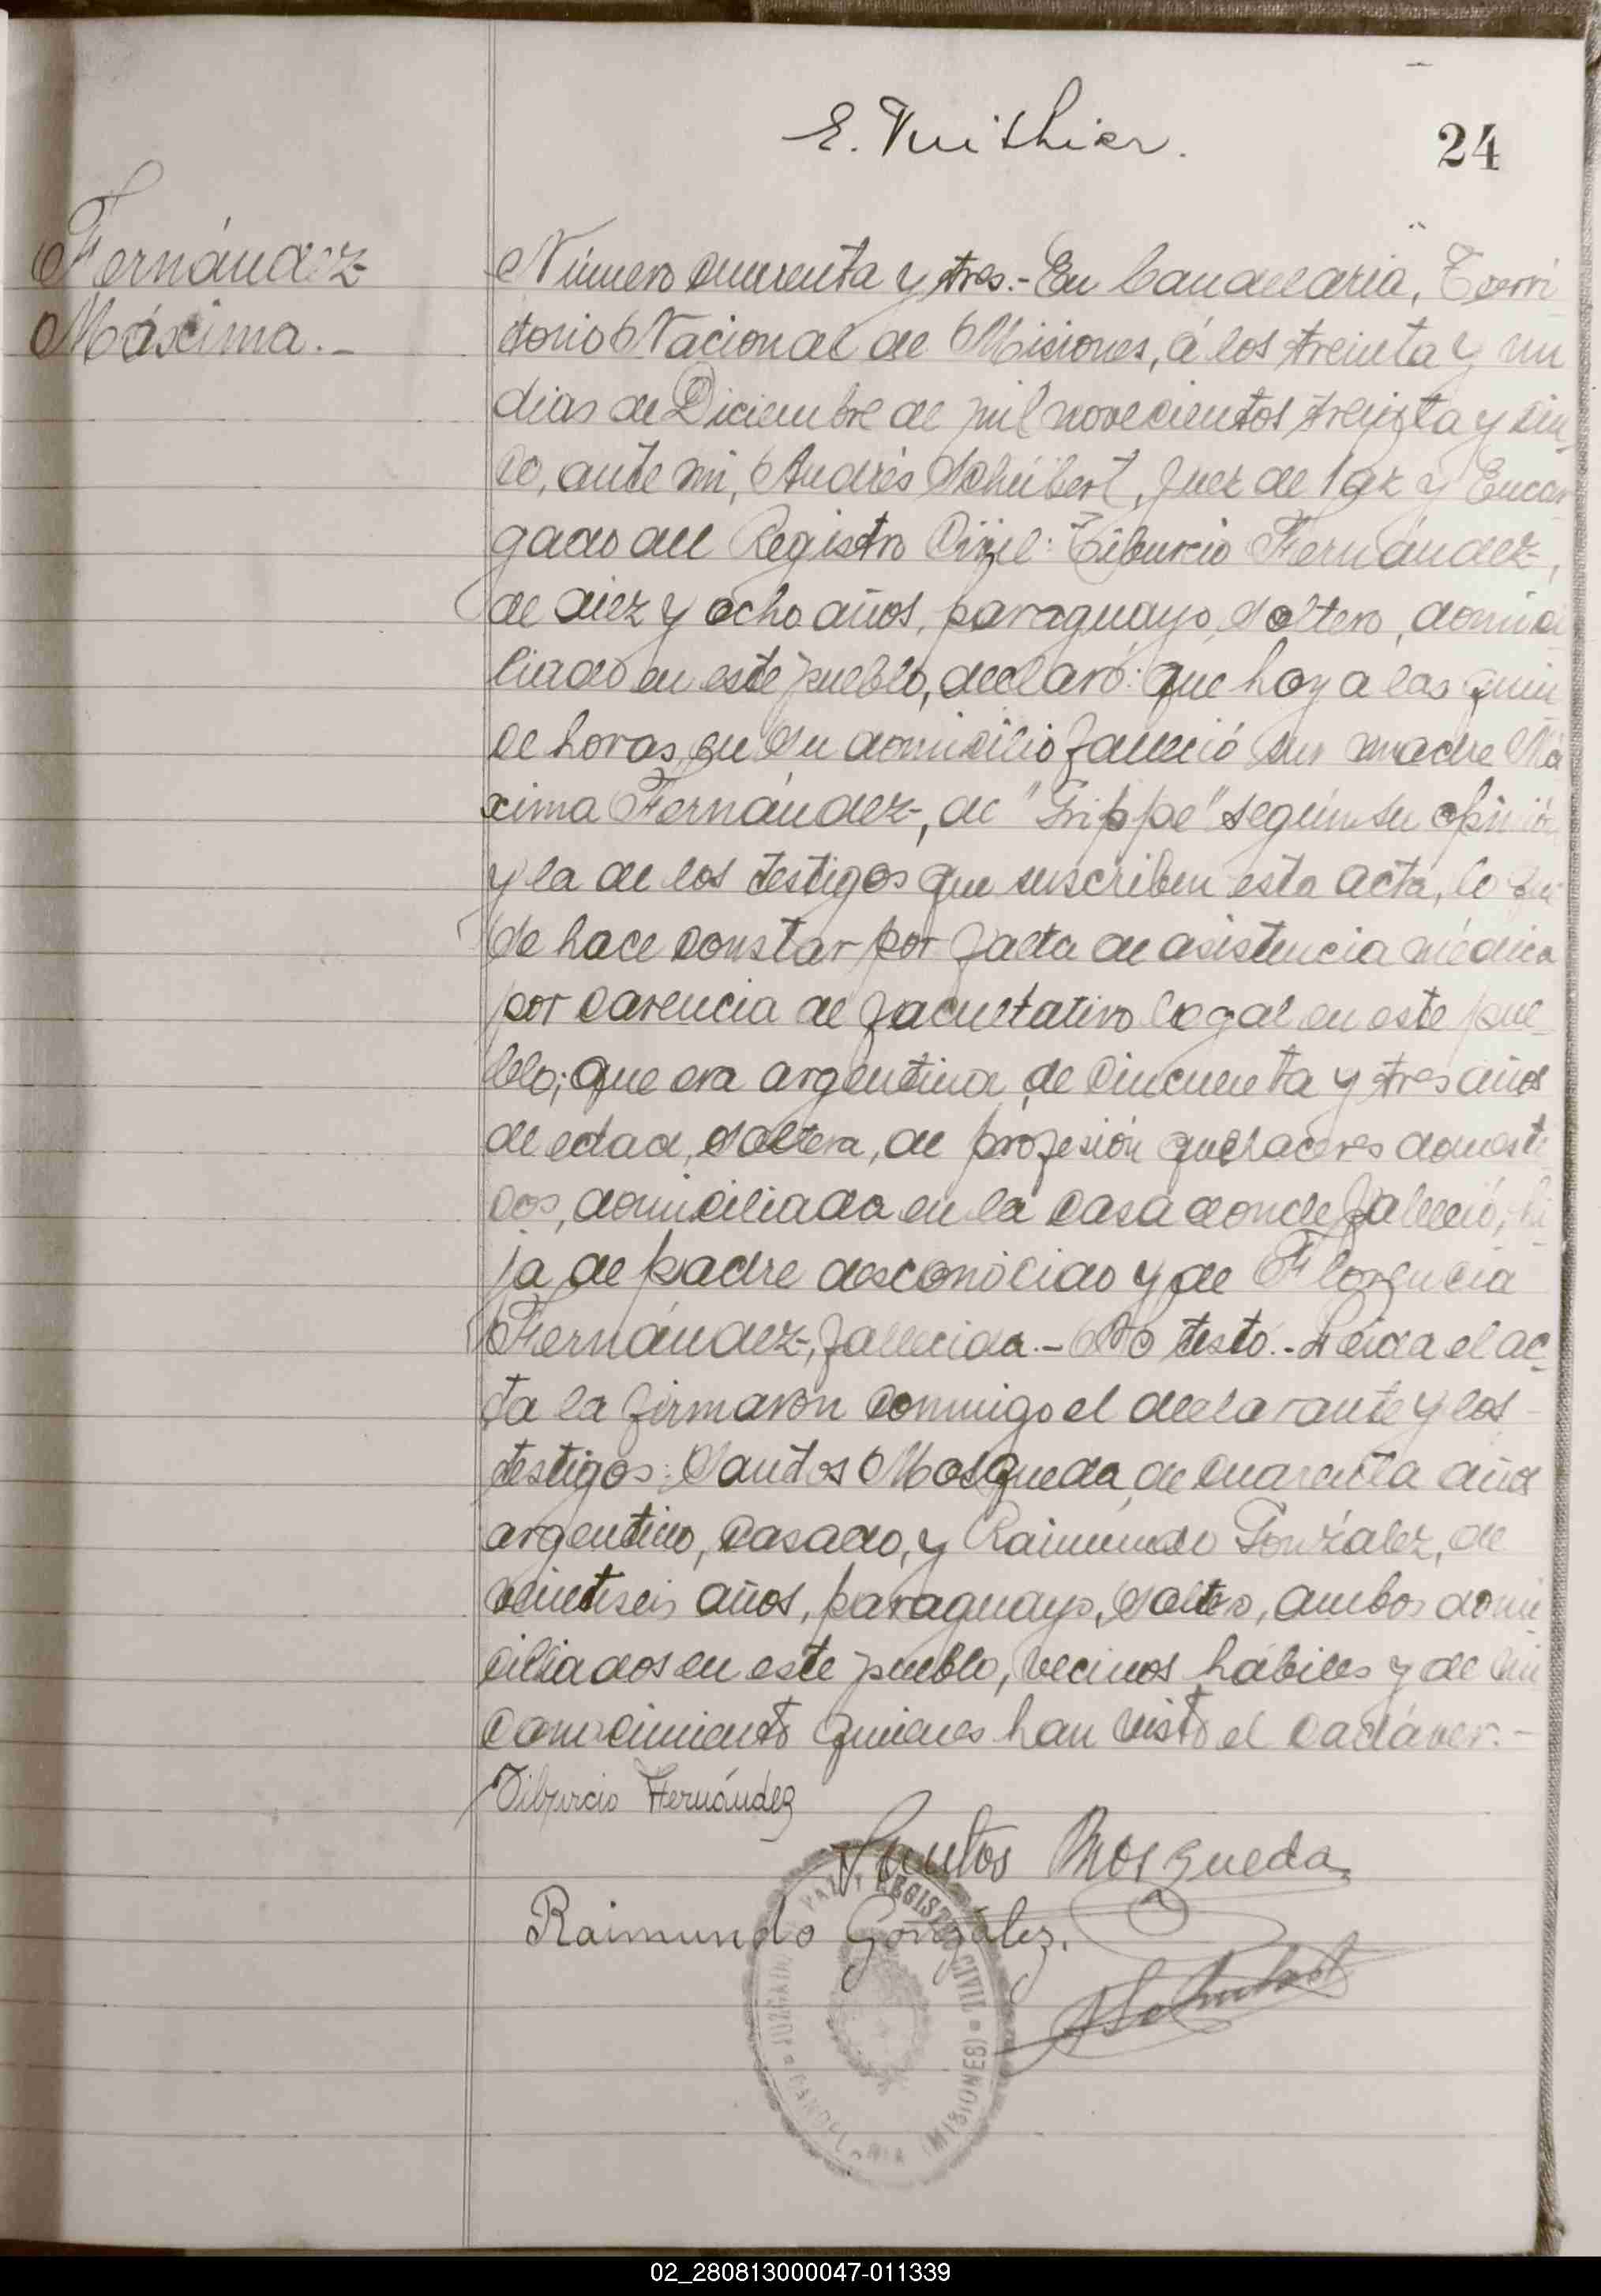 E. Vuithier.
24
Fernández
Máxima.-
Número cuarenta y tres.- En Candelaria, Terri
torio Nacional de Misiones, á los treinta y un
dias de Diciembre de mil novecientos treinta y cin_
co, ante mi, Andrés Schübert, Juez de Paz y Encar
gado del Registro Civil: Tiburcio Fernández,
de diez y ocho años, paraguayo, soltero, domici
liado en este pueblo, declaró: que hoy a las quin
ce horas, en su domicilio falleció su madre Má
xima Fernández, de "Grippe" según su opinión
y la de los testigos que suscriben esta acta, lo que
se hace constar por falta de asistencia médica
por carencia de facultativo legal en este pue_
blo; que era argentina, de cincuenta y tres años
de edad, soltera, de profesión quehaceres domesti
cos, domiciliada en la casa donde falleció, hi
ja de padre desconocido y de Florencia
Fernández, fallecida.- No testó.- Leida el ac_
ta la firmaron conmigo el declarante y los
testigos: Santos Mosqueda, de cuarenta años
argentino, casado, y Raimundo González, de
veintiseis años, paraguayo, soltero, ambos domi
ciliados en este pueblo, vecinos hábiles y de mi
conocimiento quienes han visto el cadáver.-
Tiburcio Fernández
Santos Mosqueda
Raimundo González.
ASchubert
JUZGADO DE PAZ Y REGISTRO CIVIL
CANDELARIA (MISIONES)
02_280813000047-011339